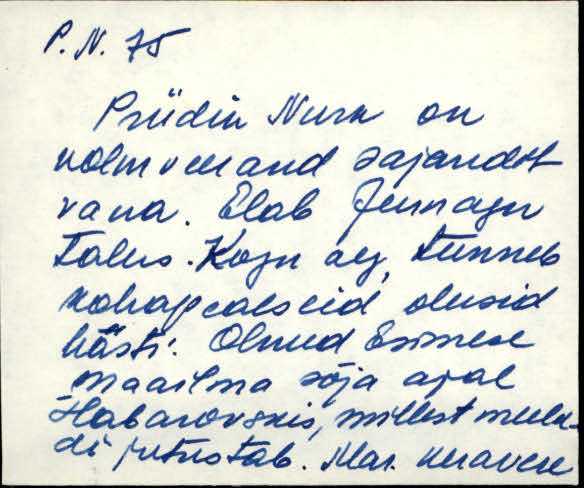 P. N. 75
Priidin Nurk on
kolmveerand sajandit
vana. Elab
talus. Kogu aeg, tunneb
kohapealseid olusid
hästi. Olnud Esimese
maailma sõja ajal
Habarovskis, millest meelə-
di jutustab. Mar.